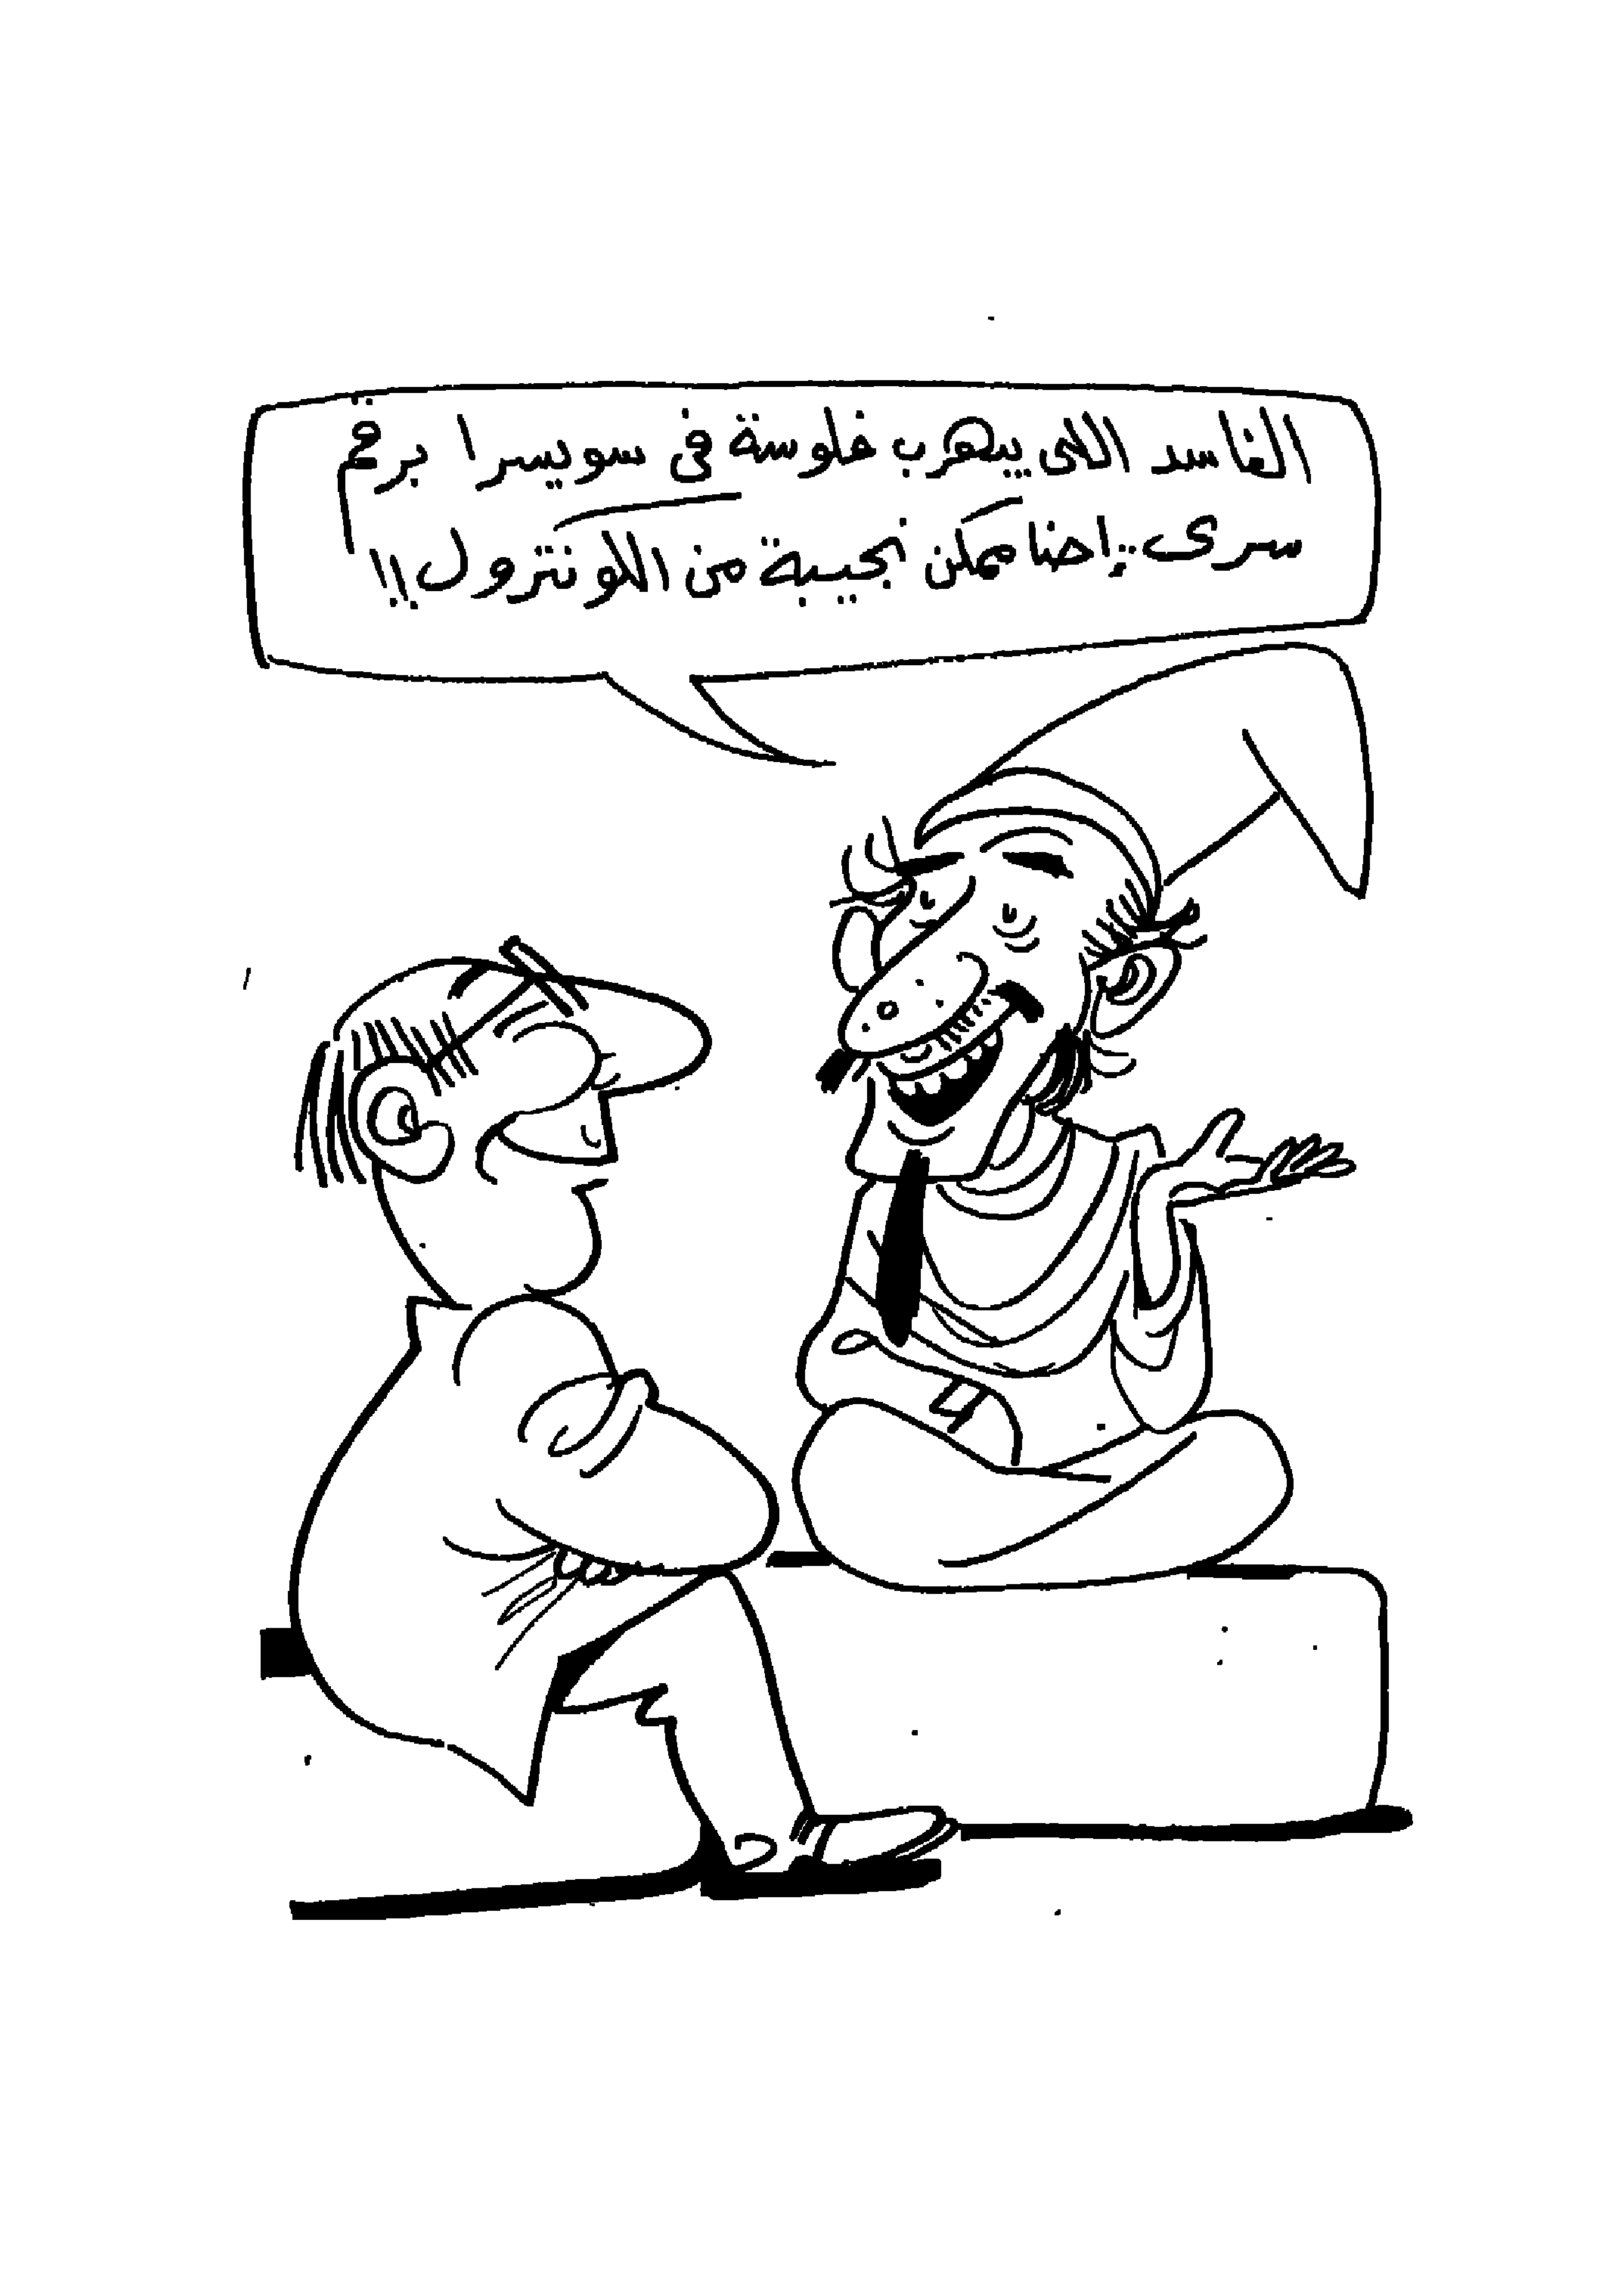 الفاسد اللى بيهرب فلوسة فى سويسرا برقم
سرى .. إحنا ممكن نجيبة من الكونترول !!